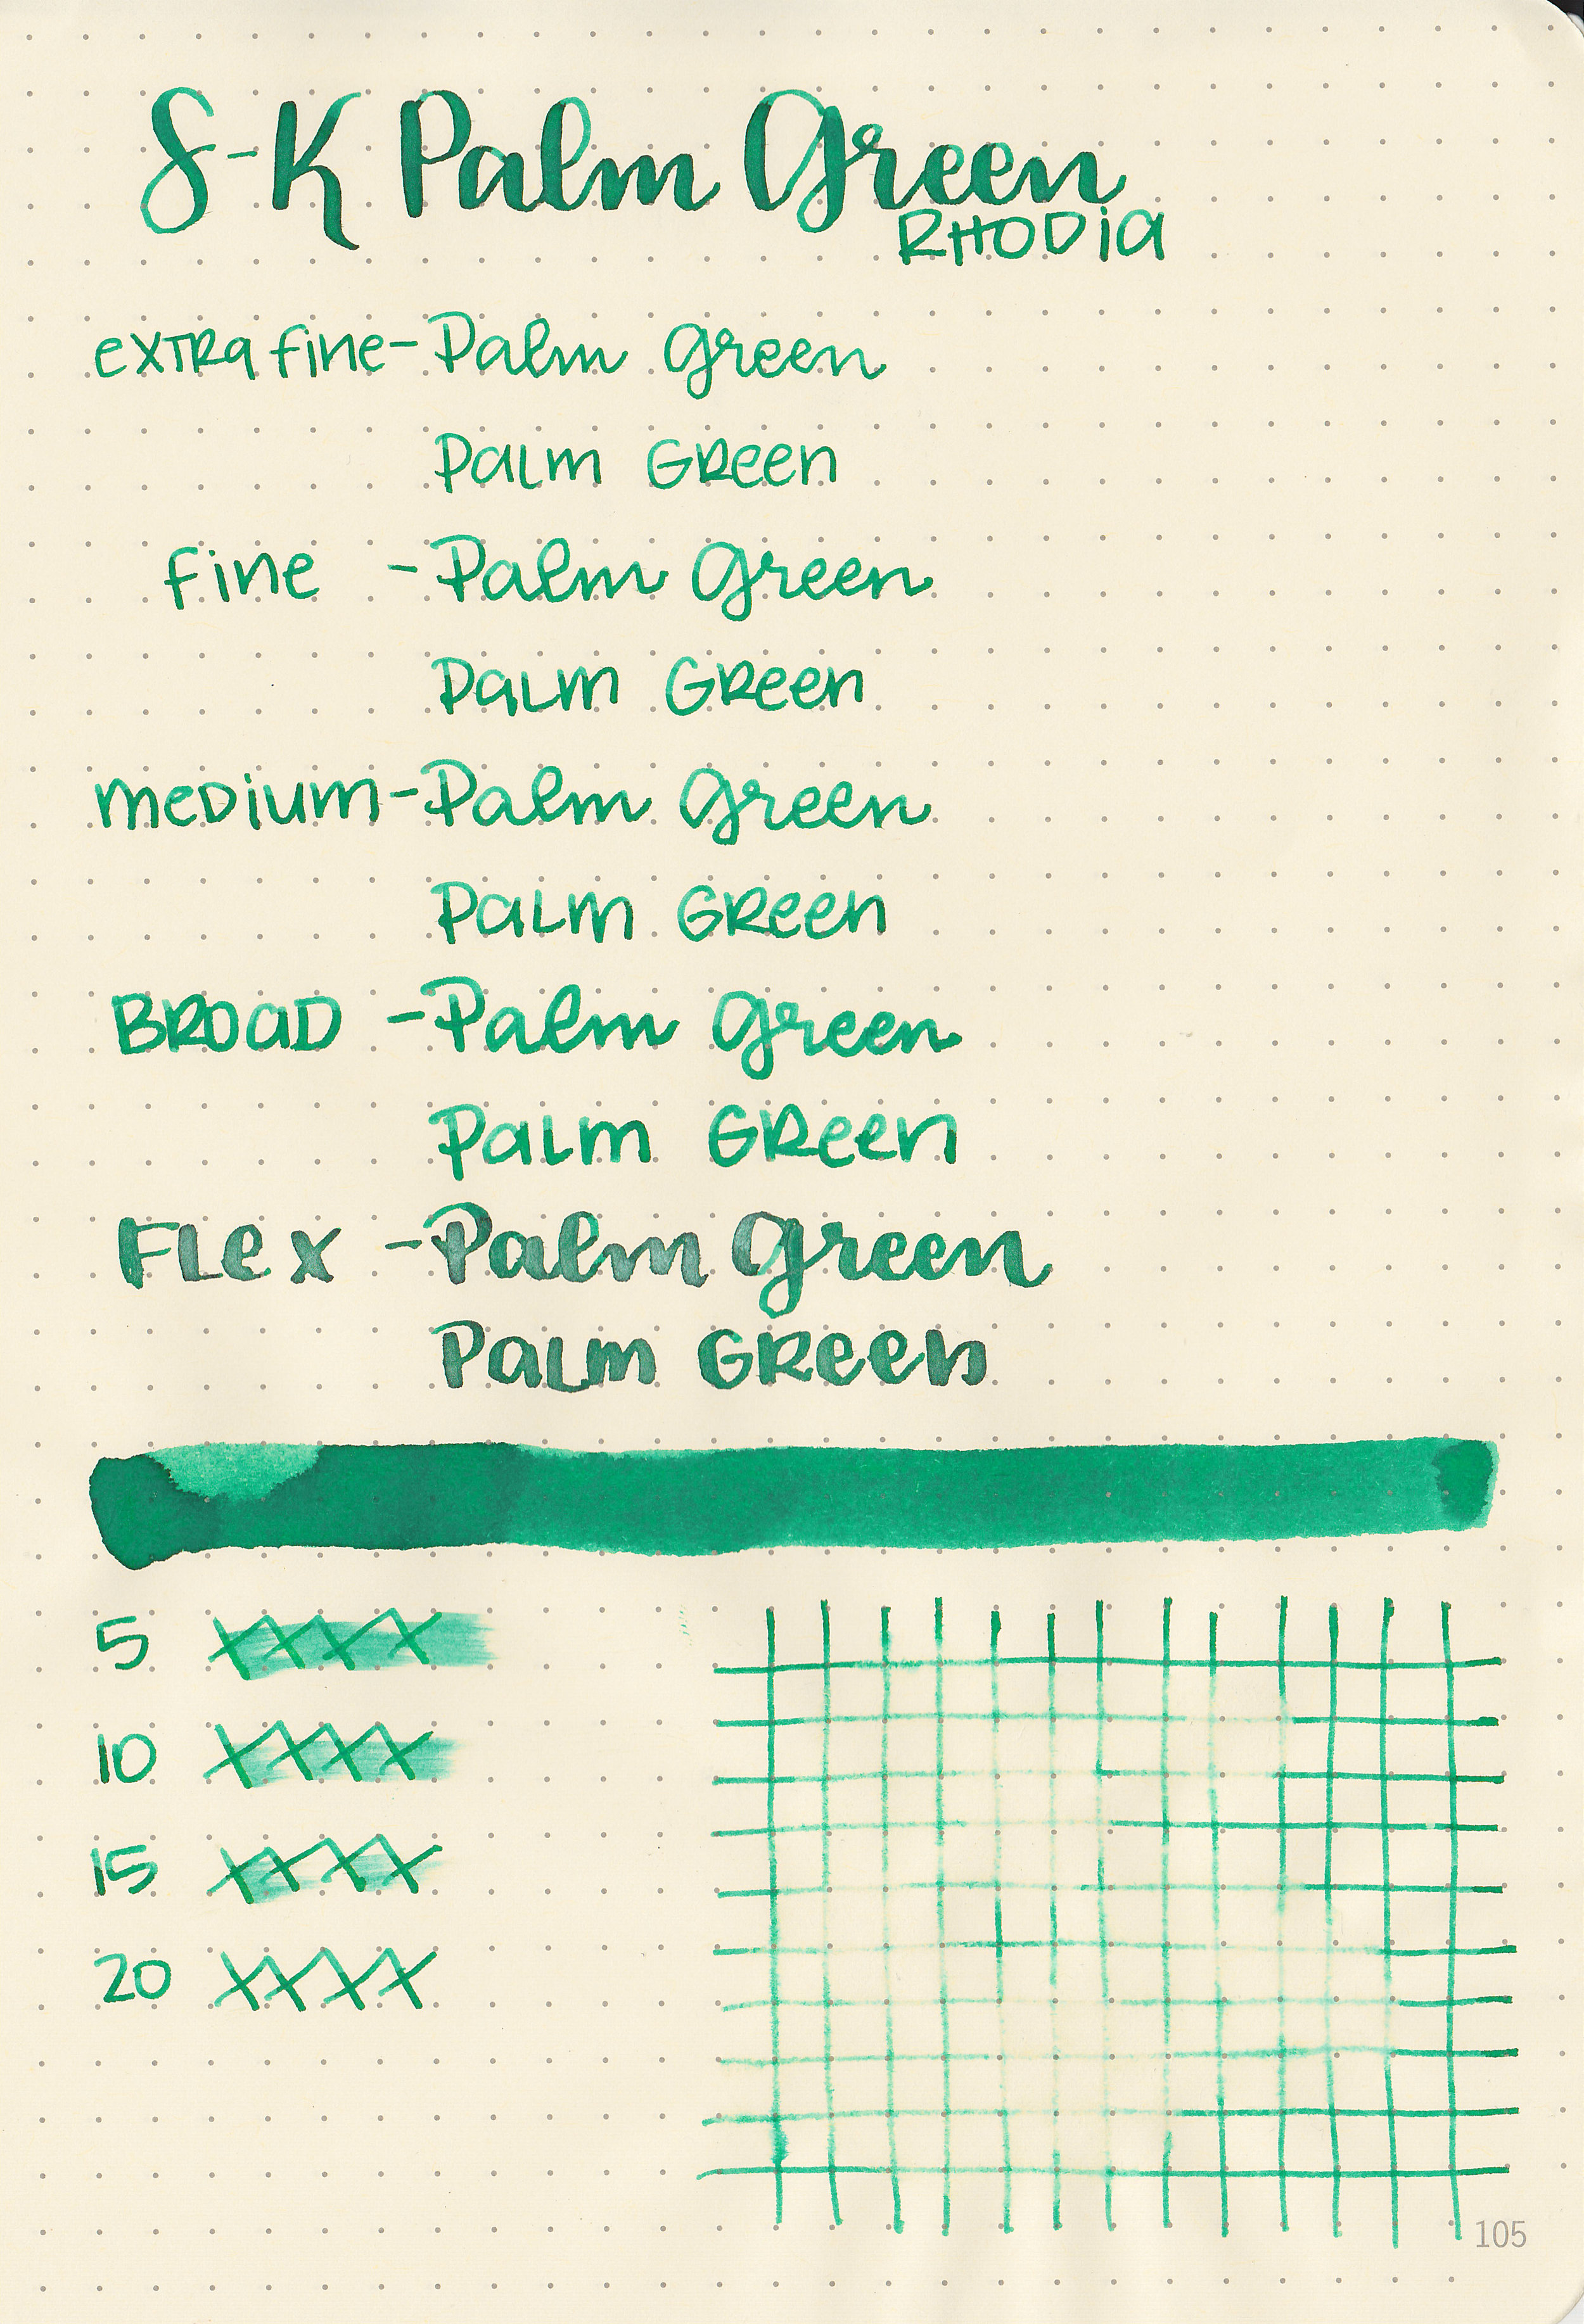 S-K Palm Green
RHODIA
extra fine - Palm Green
Palm Green
fine - Palm Green
Palm Green
medium - Palm Green
Palm Green
BROAD - Palm Green
Palm Green
FLex - Palm Green
Palm Green
5 XXXX
10 XXXX
15 XXXX
20 XXXX
105